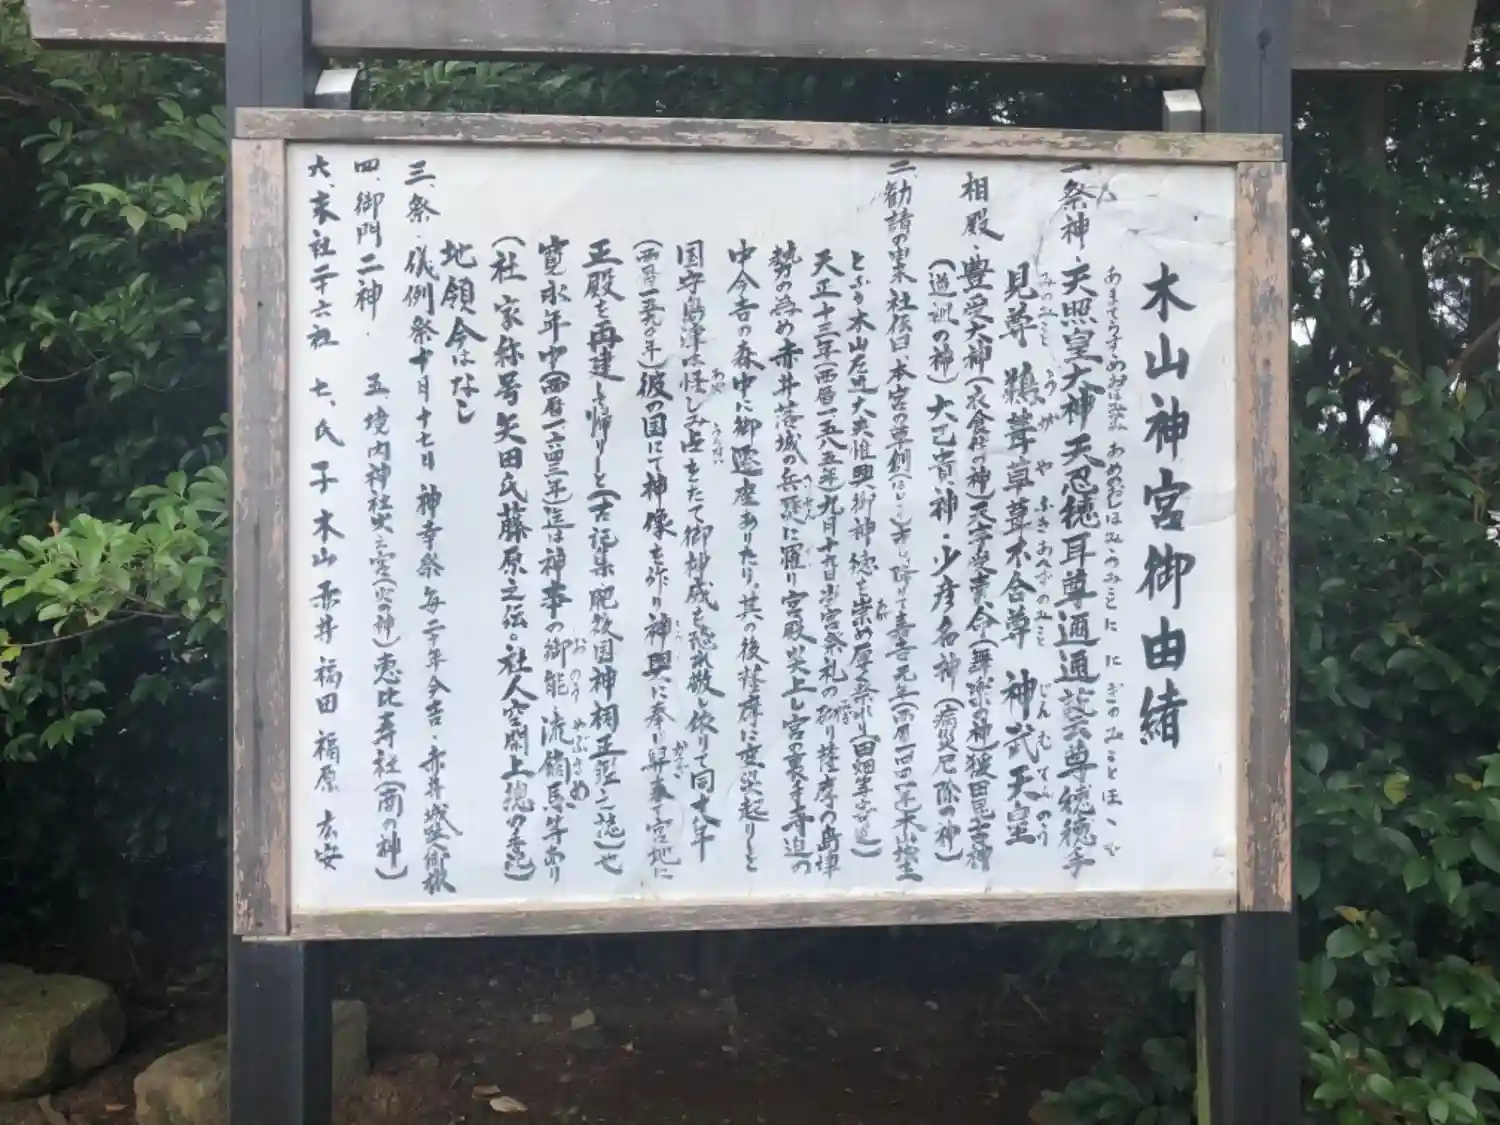 木山神宮御由緒
一、祭神・天照皇大神 天忍穂耳尊 邇邇藝尊 穂穂手
見尊 鵜葺草葺不合尊 神武天皇
みのみこと うがやふきあへずのみこと じんむてんのう
相殿・豊受大神(衣食住の神)天宇受売命(舞楽の神)猿田毘古神
(道訓の神)大己貴神・少彦名神(病災厄除の神)
二、勧請の由来 社伝曰 本宮の草創
木山左近大夫惟興御神徳を崇め厚く祭れり(田畑等寄進)
天正十三年(西暦一五八五年)九月十 日当宮祭礼の砌り薩摩の島津
勢の為め赤井落城の兵 に罹り宮殿炎上し宮の裏手寺迫の
中今吉の森中に御遷座ありたり。其の後薩摩に 災起りしと
国守島津は怪しみ占をたて御神威を恐れ敬し依りて同十八年
彼の国にて神像を作り神輿に奉り昇奉て宮地に
正殿を再建し帰りしと(古記集肥後国神祠正鑑之誌)也
寛永年中(西暦一六四三年)迄は神事の御能 流鏑馬等あり
おのう やぶさめ
(社家称号矢田氏藤原之伝。社人空閑上総の 記)
地領今はなし
三、祭・儀例祭 十月十七日 神幸祭 毎二 年今吉・赤井城
四、御門二神 五、境内神社 (火の神)恵比寿社(商の神)
六、末社二十六社 七、氏子 木山 赤井 福田 福原 古安